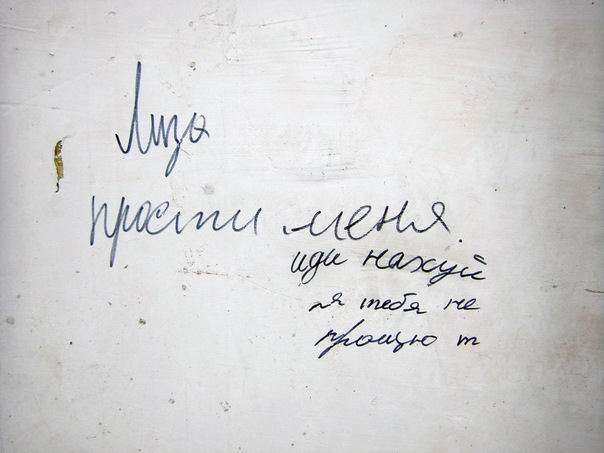 Лиза
прости меня
иди нахуй
я тебя не
прощю т